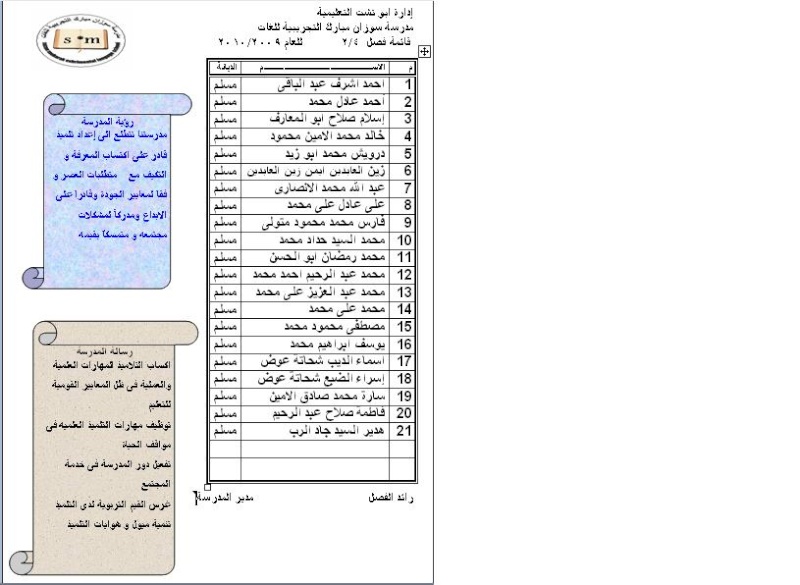 إدارة ابو تشت التعليمية
مدرسة سوزان مبارك التجريبية للغات
قائمة فصل ٢/٤ للعام ٢٠١٠/٢٠٠٩
s m
م الاســـــــم الديانة
1 احمد اشرف عبد الباقى مسلم
2 احمد عادل محمد مسلم
3 إسلام صلاح ابو المعارف مسلم
4 خالد محمد الامين محمود مسلم
5 درويش محمد ابو زيد مسلم
6 زين العابدين ايمن زين العابدين مسلم
7 عبد الله محمد الانصارى مسلم
8 على عادل على محمد مسلم
9 فارس محمد محمود متولى مسلم
10 محمد السيد حداد محمد مسلم
11 محمد رمضان ابو الحسن مسلم
12 محمد عبد الرحيم احمد محمد مسلم
13 محمد عبد العزيز على محمد مسلم
14 محمد على محمد مسلم
15 مصطفى محمود محمد مسلم
16 يوسف ابراهيم محمد مسلم
17 اسماء الديب شحاتة عوض مسلم
18 إسراء الضبع شحاتة عوض مسلم
19 سارة محمد صادق الامين مسلم
20 فاطمة صلاح عبد الرحيم مسلم
21 هدير السيد جاد الرب مسلم
رائد الفصل مدير المدرسة
رؤية المدرسة
مدرستنا تتطلع الى إعداد تلميذ
قادر على اكتساب المعرفة و
التكيف مع متطلبات العصر و
فقا لمعايير الجودة وقادرا على
الابداع ومدركاً لمشكلات
مجتمعه و متمسكاً بقيمه
رسالة المدرسة
اكساب التلاميذ المهارات العلمية
والعملية فى ظل المعايير القومية
للتعليم
توظيف مهارات التلميذ العلميه فى
مواقف الحياة
تفعيل دور المدرسة فى خدمة
المجتمع
غرس القيم التربوية لدى التلميذ
تنمية ميول و هوايات التلميذ